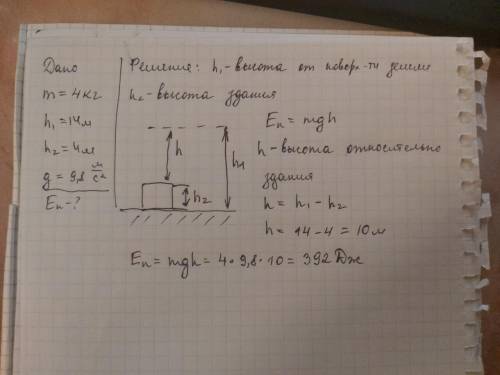 Дано
m = 4 кг
h₁ = 14 м
h₂ = 4 м
g = 9,8 м/с²
Eп - ?
Решение: h₁ - высота от поверх-ти земли
h₂ - высота здания
Eп = mgh
h - высота относительно
здания
h = h₁ - h₂
h = 14 - 4 = 10 м
h
h₁
h₂
Eп = mgh = 4 · 9,8 · 10 = 392 Дж